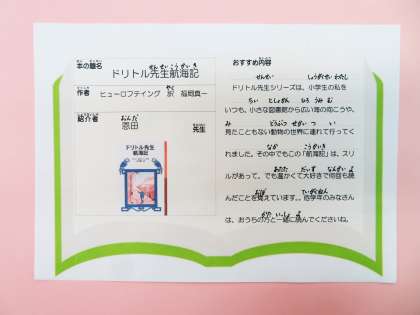 本の題名
ドリトル先生航海記
作者 ヒューロフテイング 訳 福岡真一
紹介者
恩田 先生
ドリトル先生
航海記
おすすめ内容
ドリトル先生シリーズは、小学生の私を
いつも、小さな図書館から広い海の向こうや、
見たこともない動物の世界に連れて行ってく
れました。その中でもこの「航海記」は、スリ
ルがあって。でも温かくて大好きで何回も読
んだことを覚えています。。低学年のみなさん
は、おうちの方と一緒に読んでくださいね。